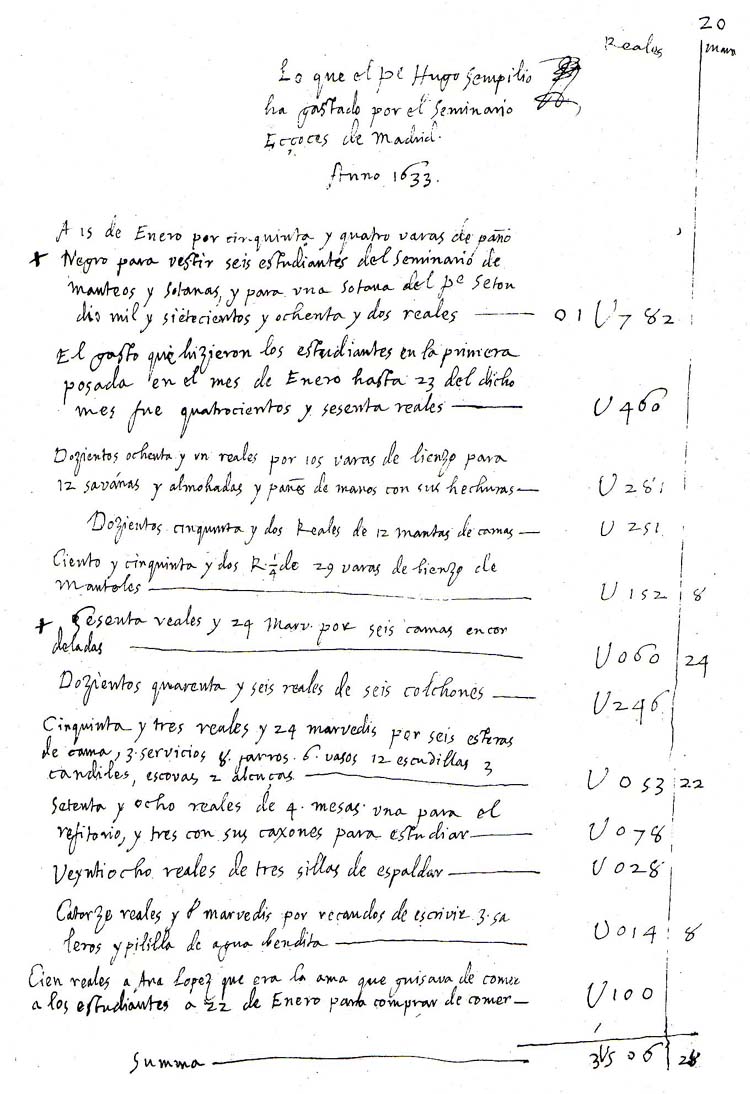 20
Reales
marv
Lo que el pe Hugo Sempilio
ha gastado por el Seminario
Escoces de Madrid.
Anno 1633.
A 15 de Enero por cinquinta y quatro varas de paño
+ Negro para vestir seis estudiantes del Seminario de
manteos y sotanas, y para vna sotana del pe Seton
dis mil y sietecientos y ochenta y dos reales — 01U782
El gasto que hizieron los estudiantes en la primera
posada en el mes de Enero hasta 23 del dicho
mes fue quatrocientos y sesenta reales — U460
Dozientos ochenta y vn reales por 105 varas de lienzo para
12 savanas y almohadas y pañes de manos con sus hechuras — U281
Dozientos cinquinta y dos Reales de 12 mantas de camas — U251
Ciento y cinquinta y dos R. 1/4 de 29 varas de lienzo de
manteles — U152 8
+ Sesenta reales y 24 Marv. por seis camas encor
deladas — U060 24
Dozientos quarenta y seis reales de seis colchones — U246
Cinquinta y tres reales y 24 marvedis por seis esteras
de cama, 3 servicios 8. jarros. 6. vasos 12 escudillas 3
candiles, escovas 2 alcuças — U053 22
Setenta y ocho reales de 4. mesas vna para el
refitorio, y tres con sus caxones para estudiar — U078
Veyntiocho reales de tres sillas de espaldar — U028
Catorze reales y 8 marvedis por recaudos de escrivir 3. sa
leros y pililla de agua bendita — U014 8
Cien reales a Ana Lopez que era la ama que guisava de comer
a los estudiantes a 22 de Enero para comprar de comer — U100
Summa — 3U506 28